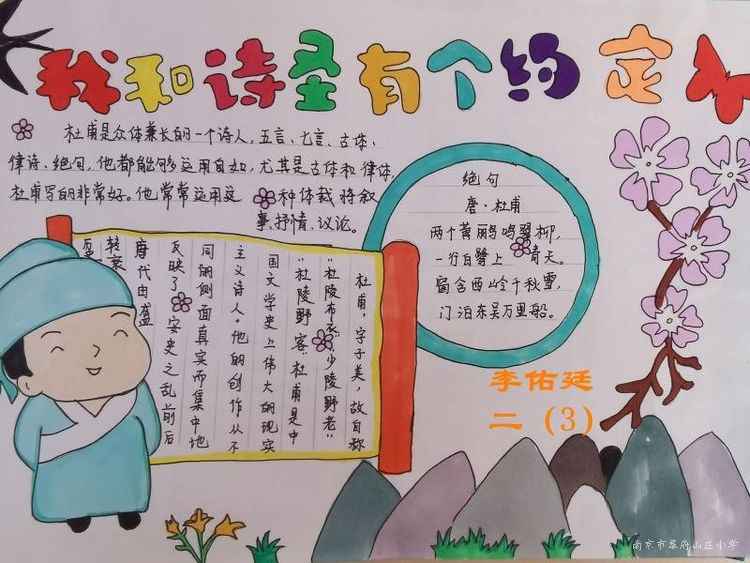 我和诗圣有个约定
杜甫是众体兼长的一个诗人,五言、七言、古体、
律诗、绝句,他都能够运用自如,尤其是古体和律体,
杜甫写的非常好。他常常运用这一种体裁将叙
事、抒情、议论。
绝句
唐·杜甫
两个黄鹂鸣翠柳,
一行白鹭上青天。
窗含西山岭千秋雪,
门泊东吴万里船。
杜甫,字子美,故自称
“杜陵布衣”“少陵野老”
“杜陵野客”杜甫是中
国文学史上伟大的现实
主义诗人。他的创作从不
同的侧面真实而集中地
反映了安史之乱前后
唐代由盛
转衰
李佑廷
二(3)
南京市幕府山庄小学